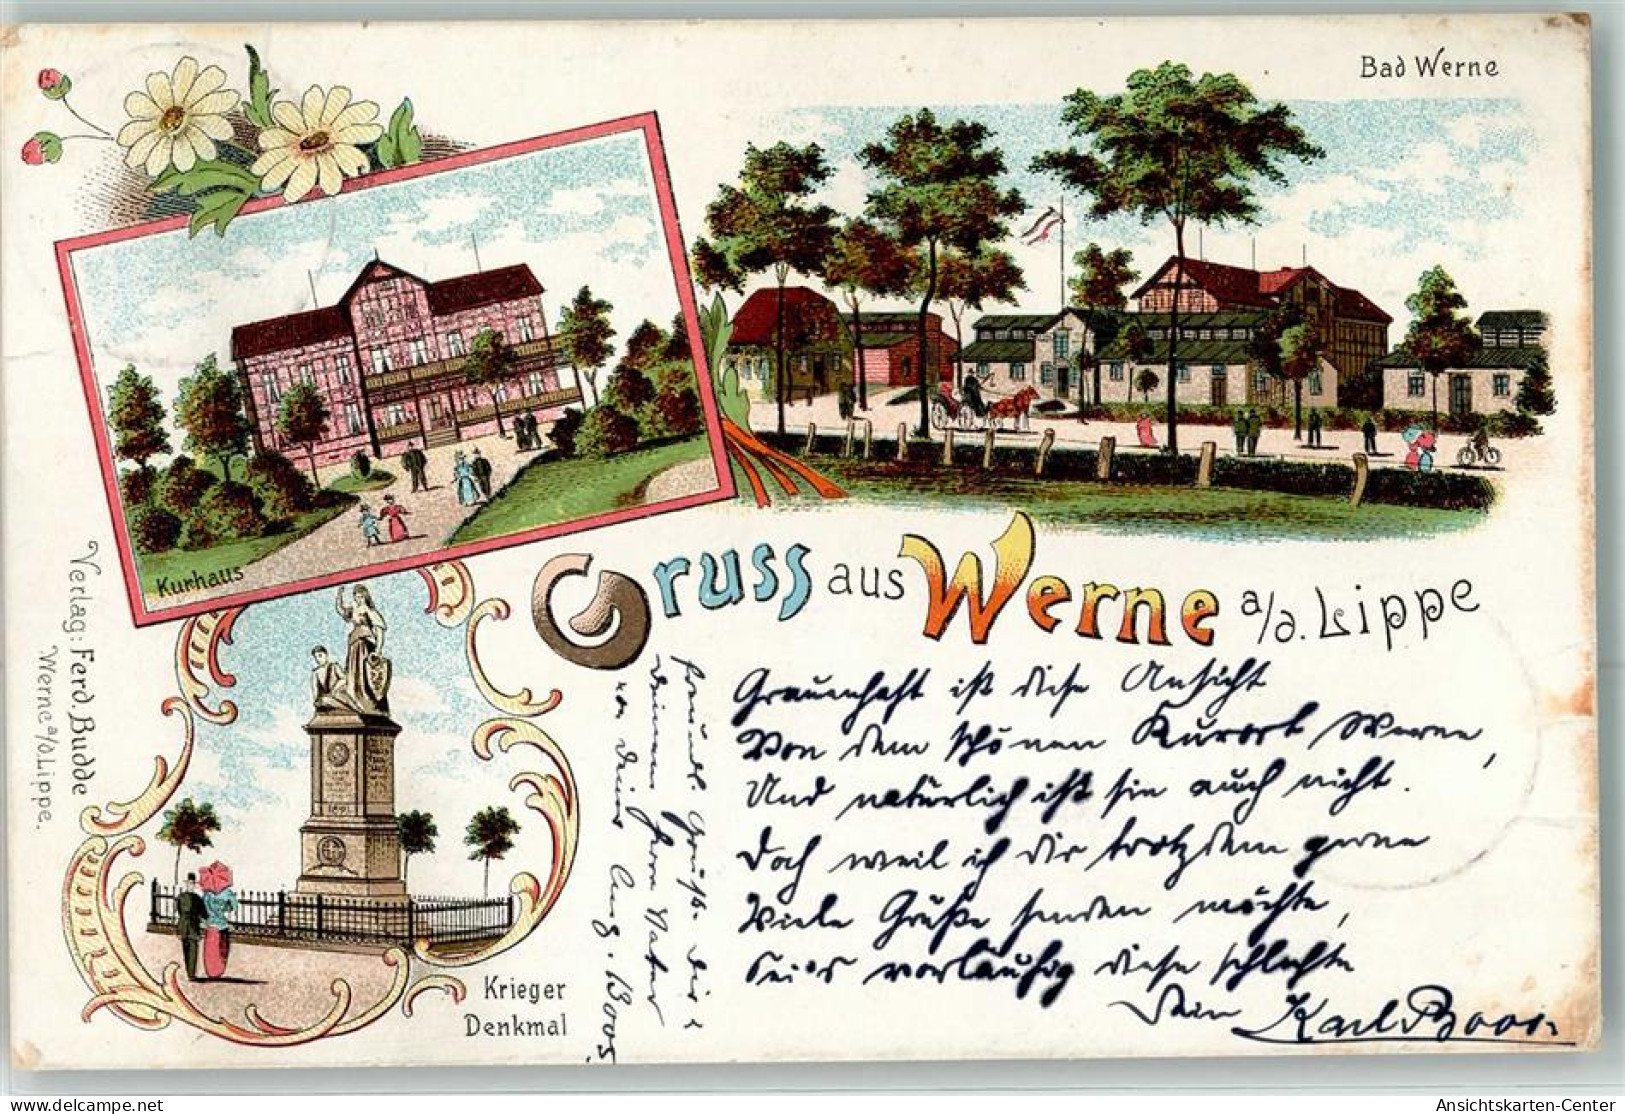 Bad Werne
Kurhaus
Gruss aus Werne a/d. Lippe
Verlag: Ferd. Budde
Werne a/d. Lippe.
Krieger
Denkmal
1891
Grauenhaft ist diese Ansicht
Von dem schönen Kurort Werne,
Und natürlich ist sie auch nicht.
Doch weil ich dir trotzdem gerne
Viele Grüße senden möchte,
Sei's vorläufig diese schlechte
Dein Karl Boos.
Freundl. Grüße Dir u
Deinem Herrn Vater
von Deine Aug. Boos.
Ansichtskarten-Center
delcampe.net